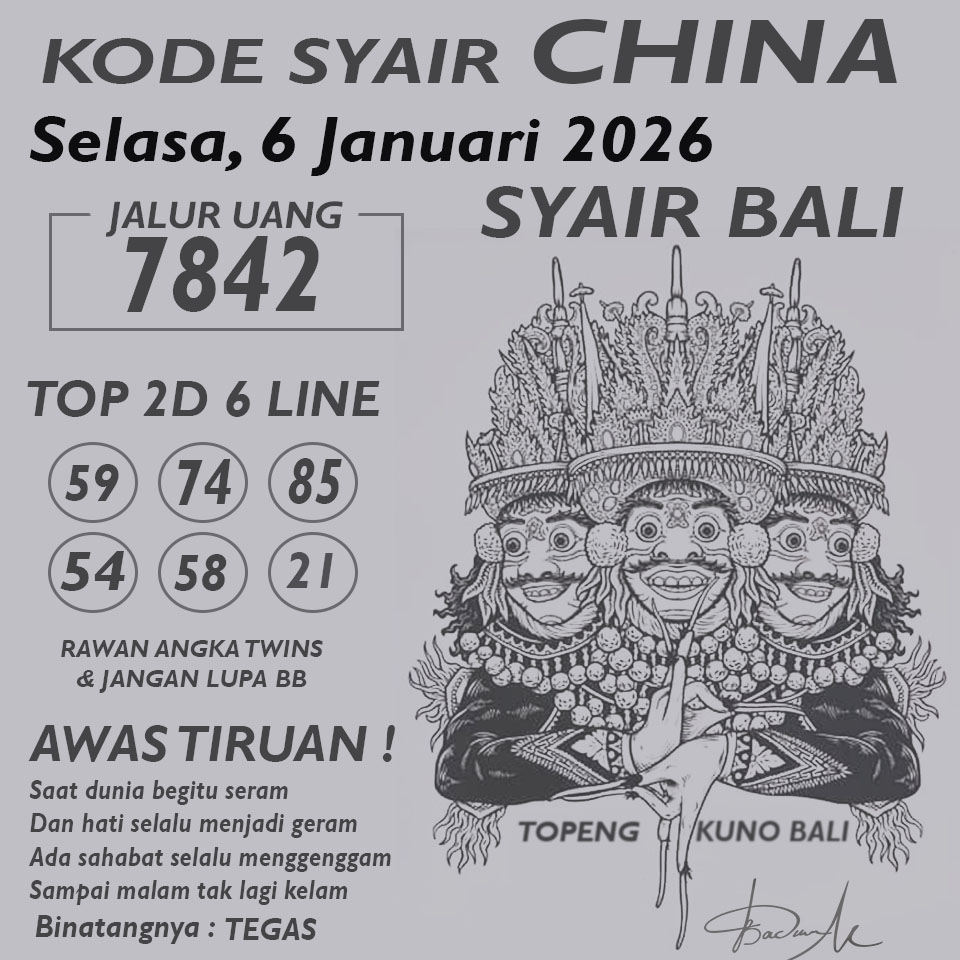 KODE SYAIR CHINA
Selasa, 6 Januari 2026
SYAIR BALI
JALUR UANG
7842
TOP 2D 6 LINE
59 74 85
54 58 21
RAWAN ANGKA TWINS
& JANGAN LUPA BB
AWAS TIRUAN !
Saat dunia begitu seram
Dan hati selalu menjadi geram
Ada sahabat selalu menggenggam
Sampai malam tak lagi kelam
Binatangnya : TEGAS
TOPENG KUNO BALI